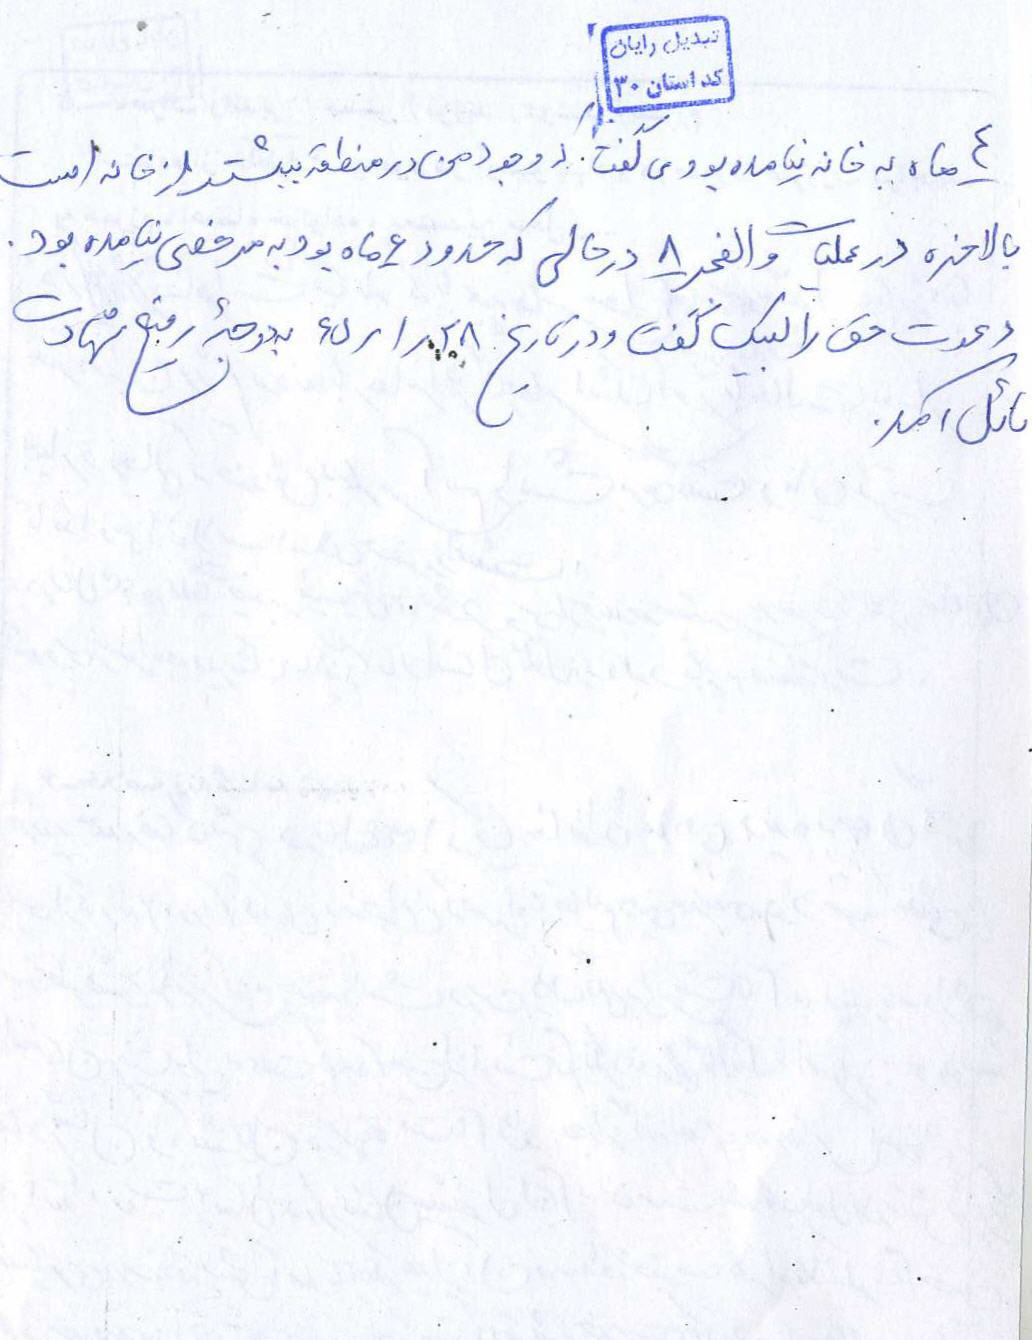 تبدیل رایان
کد استان ۳۰
٤ ماه به خانه نیامده بود می گفت. وجود من در منطقه بیشتر از خانه است
بالاخره در عملیات والفجر ۸ در حالی که حدود ٤ ماه بود به مرخصی نیامده بود.
دعوت حق را لبیک گفت و در تاریخ ۶۵/۱/۲۸ به درجۀ رفیع شهادت
نائل آمد.